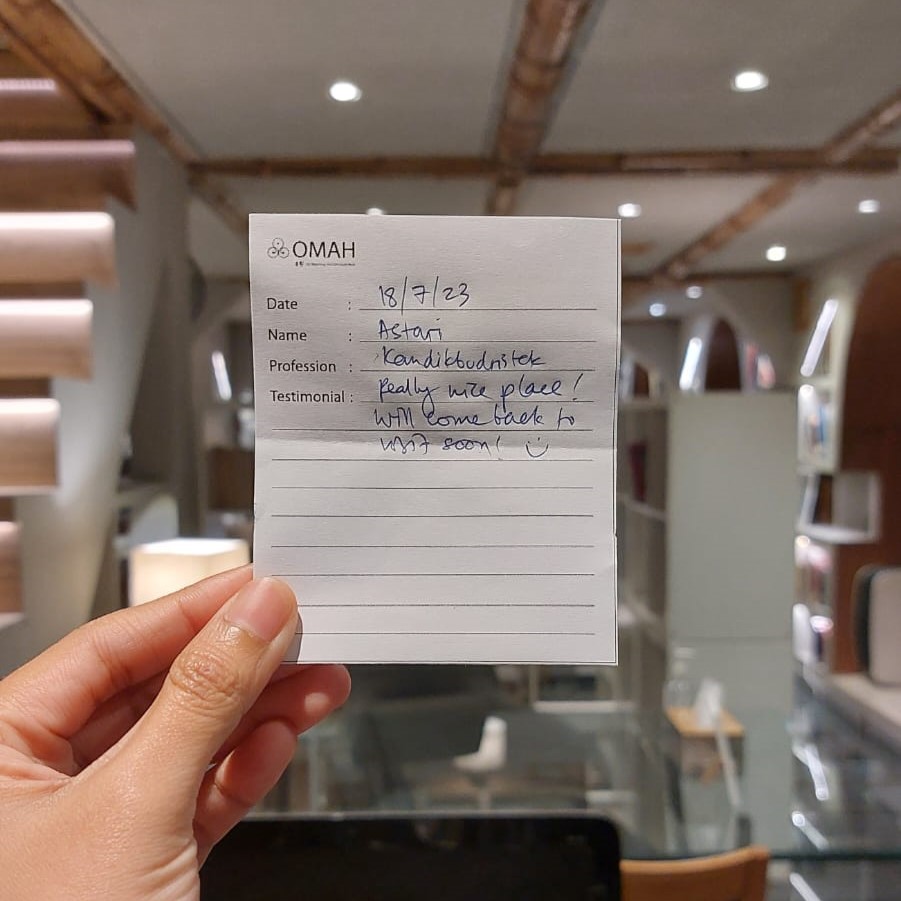 OMAH
Date : 18/7/23
Name : Astari
Profession : Kemdikbudristek
Testimonial : Really nice place!
Will come back to
visit soon! :)